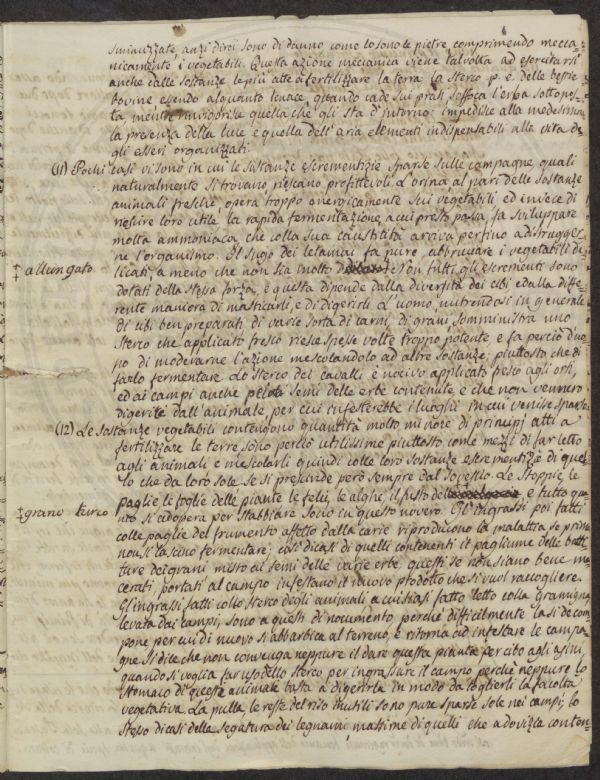 sminuzzate, anzi direi sono di danno como lo sono le pietre, comprimendo mecca-
nicamente i vegetabili. Questa azione meccanica viene talvolta ad esercitarsi
anche dalle sostanze le più atte a fertilizzare la terra. Lo sterco p. e. delle bestie
bovine essendo alquanto tenace, quando cade sui prati soffoca l'erba sottopos-
ta, mentre quella che gli sta d'intorno: impedisce alla medesima
la presenza della luce e quella dell'aria elementi indispensabili alla vita de-
gli esseri organizzati.
(11) Pochi casi vi sono in cui le sostanze escrementizie sparse sulle campagne, quali
naturalmente si trovano, riescano profittevoli. L'orina al pari delle sostanze
animali fresche, opera troppo energicamente sui vegetabili ed invece di
riescire loro utile la rapida fermentazione, a cui presto passa, fa sviluppare
molta ammoniaca, che colla sua caustitità arriva perfino a distrugger-
ne l'organismo. Il sugo dei letamai fa pure abbruciare i vegetabili de-
licati, a meno che non sia molto ‡ Non tutti gli escrementi sono
‡ allungato.
dotati della stessa forza, e questa dipende dalla diversità dei cibi e dalla diffe-
rente maniera di masticarli, e di digerirli. L'uomo, nutrendosi in generale
di cibi ben preparati, di varie sorta di carni, di grani, somministra uno
sterco che applicato fresco riesce spesse volte troppo potente, e fa perciò d'uo-
po di moderarne l'azione mescolandolo ad altre sostanze, piuttosto che di
farlo fermentare. Lo sterco dei cavalli è nocivo applicato fresco agli orti,
ed ai campi anche pei semi delle erbe contenute, e che non vennero
digerite dall'animale, per cui infesterebbe i luoghi in cui venisse sparso.
(12) Le sostanze vegetabili contenendo quantità molto minore di principj atti a
fertilizzare le terre, sono perciò utilissime piuttosto come mezzi di far letto
agli animali e mescolarli quindi colle loro sostanze escrementizie di quel-
lo che da loro sole, se si prescinde però sempre dal Sovescio. Le stoppie, le
paglie, le foglie delle piante, le felci, le alghe, il fusto del ‡ e tutto quan-
‡ grano turco
to si adopera per stabbiare sono in questo novero. Gl'ingrassi poi fatti
colle paglie del frumento affetto dalla carie riproducono la malattia se prima
non si lascino fermentare; così dicasi di quelli contenenti il pagliume delle batti-
ture dei grani misto ai semi delle varie erbe, questi se non siano bene ma-
cerati, portati al campo infestano il nuovo prodotto che si vuol raccogliere.
Gl'ingrassi fatti collo sterco degli animali a cui siasi fatto letto colla gramigna
levata dai campi, sono a questi di nocumento perché difficilmente la si decom-
pone per cui di nuovo si abbarbica al terreno, e ritorna ad infestare le campa-
gne. Si dice che non convenga neppure il dare questa pianta per cibo agli asini,
quando si voglia far uso dello sterco per ingrassare il campo perchè neppure lo
stomaco di queste animale basta a digerirla in modo da toglierli la facoltà
vegetativa. La pulla, le reste del riso inutili sono pure sparse sole nei campi; lo
stesso dicasi della segatura dei legnami massime di quelli che a dovizia conten-